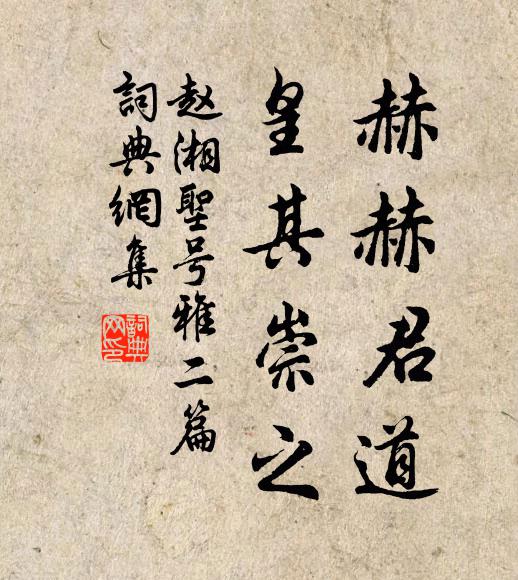 赫赫君道
皇其崇之
赵湘聖号雅二篇
詞典網集
詞典网印